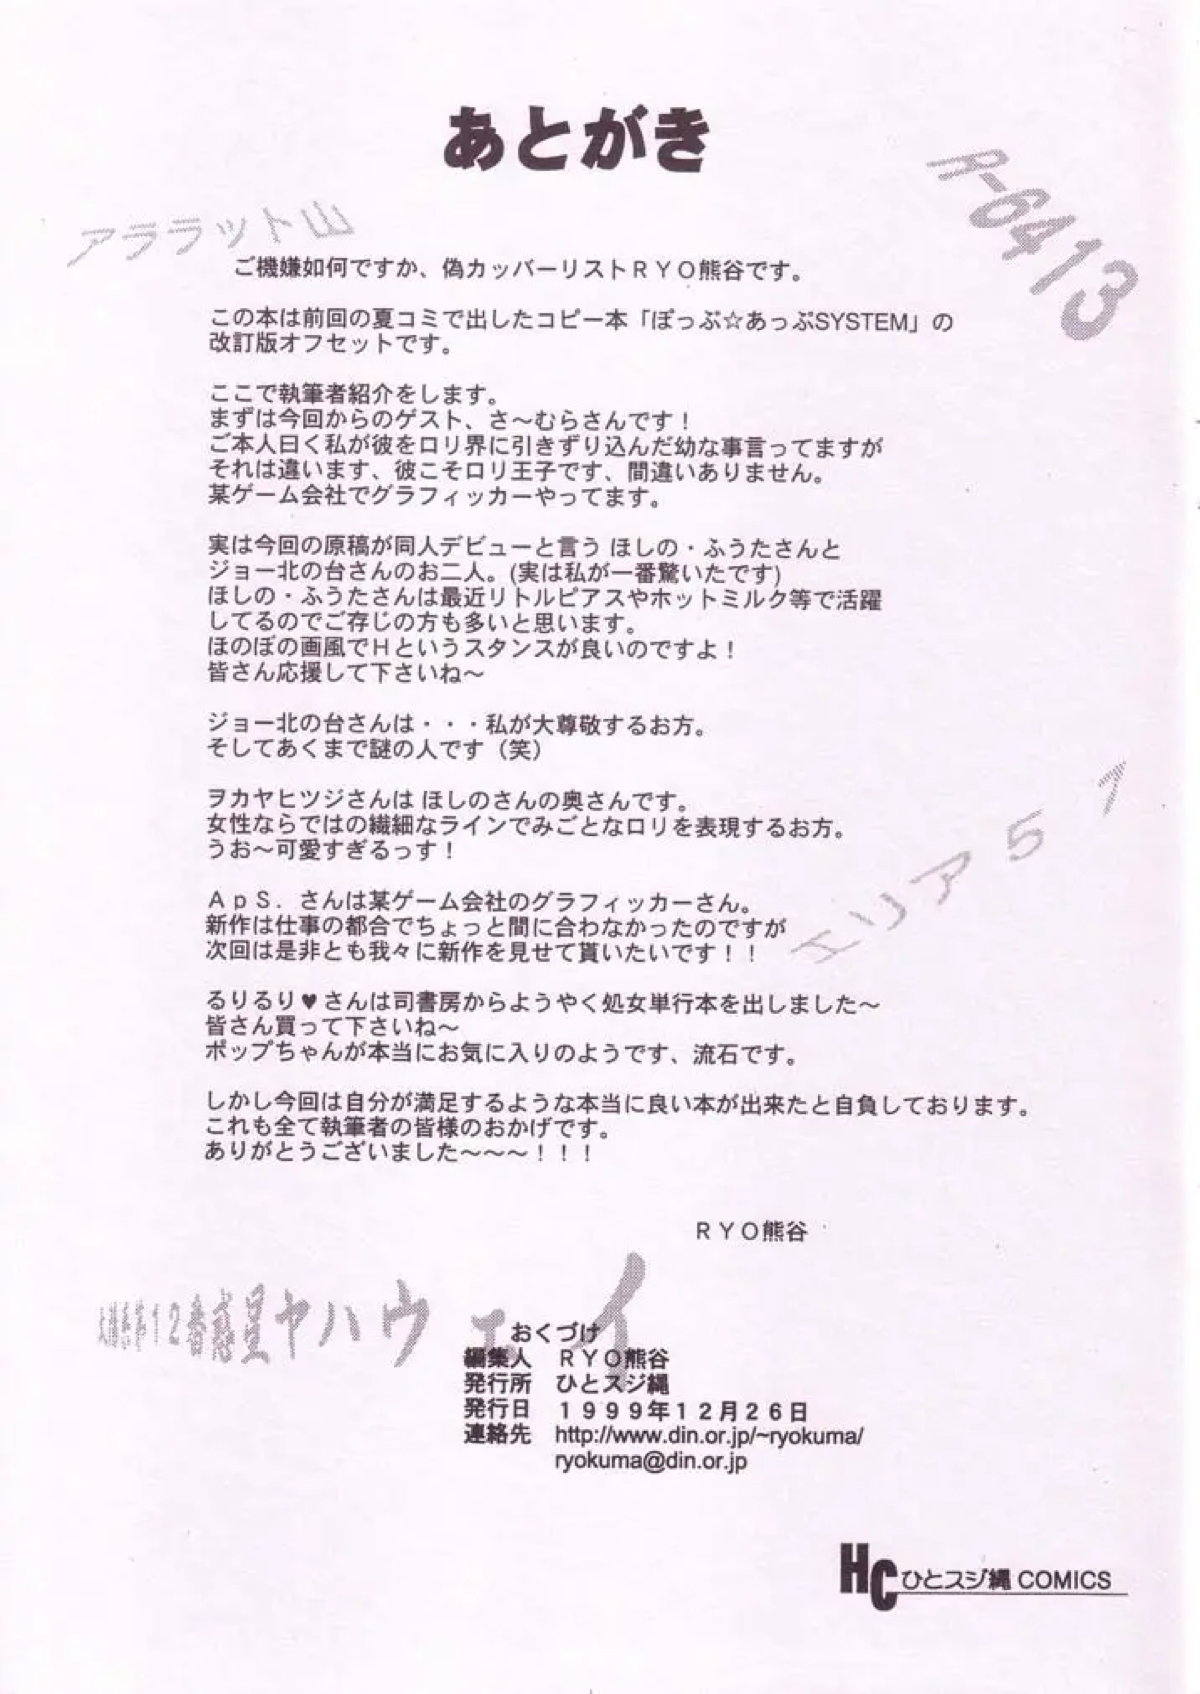 あとがき
アララット山
R-6413
ご機嫌如何ですか、偽カッバーリストRYO熊谷です。
この本は前回の夏コミで出したコピー本「ぽっぷ☆あっぷSYSTEM」の
改訂版オフセットです。
ここで執筆者紹介をします。
まずは今回からのゲスト、さ～むらさんです！
ご本人曰く私が彼をロリ界に引きずり込んだ幼な事言ってますが
それは違います、彼こそロリ王子です、間違いありません。
某ゲーム会社でグラフィッカーやってます。
実は今回の原稿が同人デビューと言う ほしの・ふうたさんと
ジョー北の台さんのお二人。(実は私が一番驚いたです)
ほしの・ふうたさんは最近リトルピアスやホットミルク等で活躍
してるのでご存じの方も多いと思います。
ほのぼの画風でHというスタンスが良いのですよ！
皆さん応援して下さいね～
ジョー北の台さんは・・・私が大尊敬するお方。
そしてあくまで謎の人です（笑）
ヲカヤヒツジさんは ほしのさんの奥さんです。
女性ならではの繊細なラインでみごとなロリを表現するお方。
うお～可愛すぎるっす！
エリア51
ApS．さんは某ゲーム会社のグラフィッカーさん。
新作は仕事の都合でちょっと間に合わなかったのですが
次回は是非とも我々に新作を見せて貰いたいです！！
るりるり♥さんは司書房からようやく処女単行本を出しました～
皆さん買って下さいね～
ポップちゃんが本当にお気に入りのようです、流石です。
しかし今回は自分が満足するような本当に良い本が出来たと自負しております。
これも全て執筆者の皆様のおかげです。
ありがとうございました～～～！！！
RYO熊谷
12番惑星ヤハウェイ
おくづけ
編集人 RYO熊谷
発行所 ひとスジ縄
発行日 1999年12月26日
連絡先 http://www.din.or.jp/~ryokuma/
ryokuma@din.or.jp
HC ひとスジ縄 COMICS